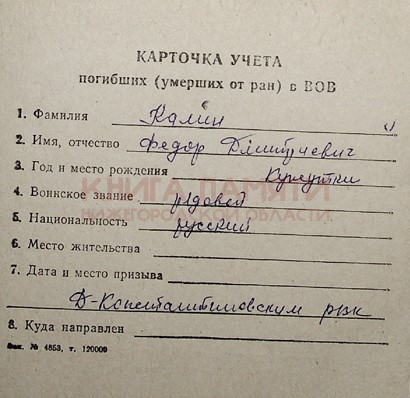 КАРТОЧКА УЧЕТА
погибших (умерших от ран) в ВОВ
1. Фамилия Калин
2. Имя, отчество Федор Дмитриевич
3. Год и место рождения
КНИГА ПАМЯТИ
НИЖЕГОРОДСКОЙ ОБЛАСТИ
4. Воинское звание рядовой
5. Национальность русский
6. Место жительства
7. Дата и место призыва
Д-Константиновским рвк
8. Куда направлен
Зак. № 4853, т. 120000